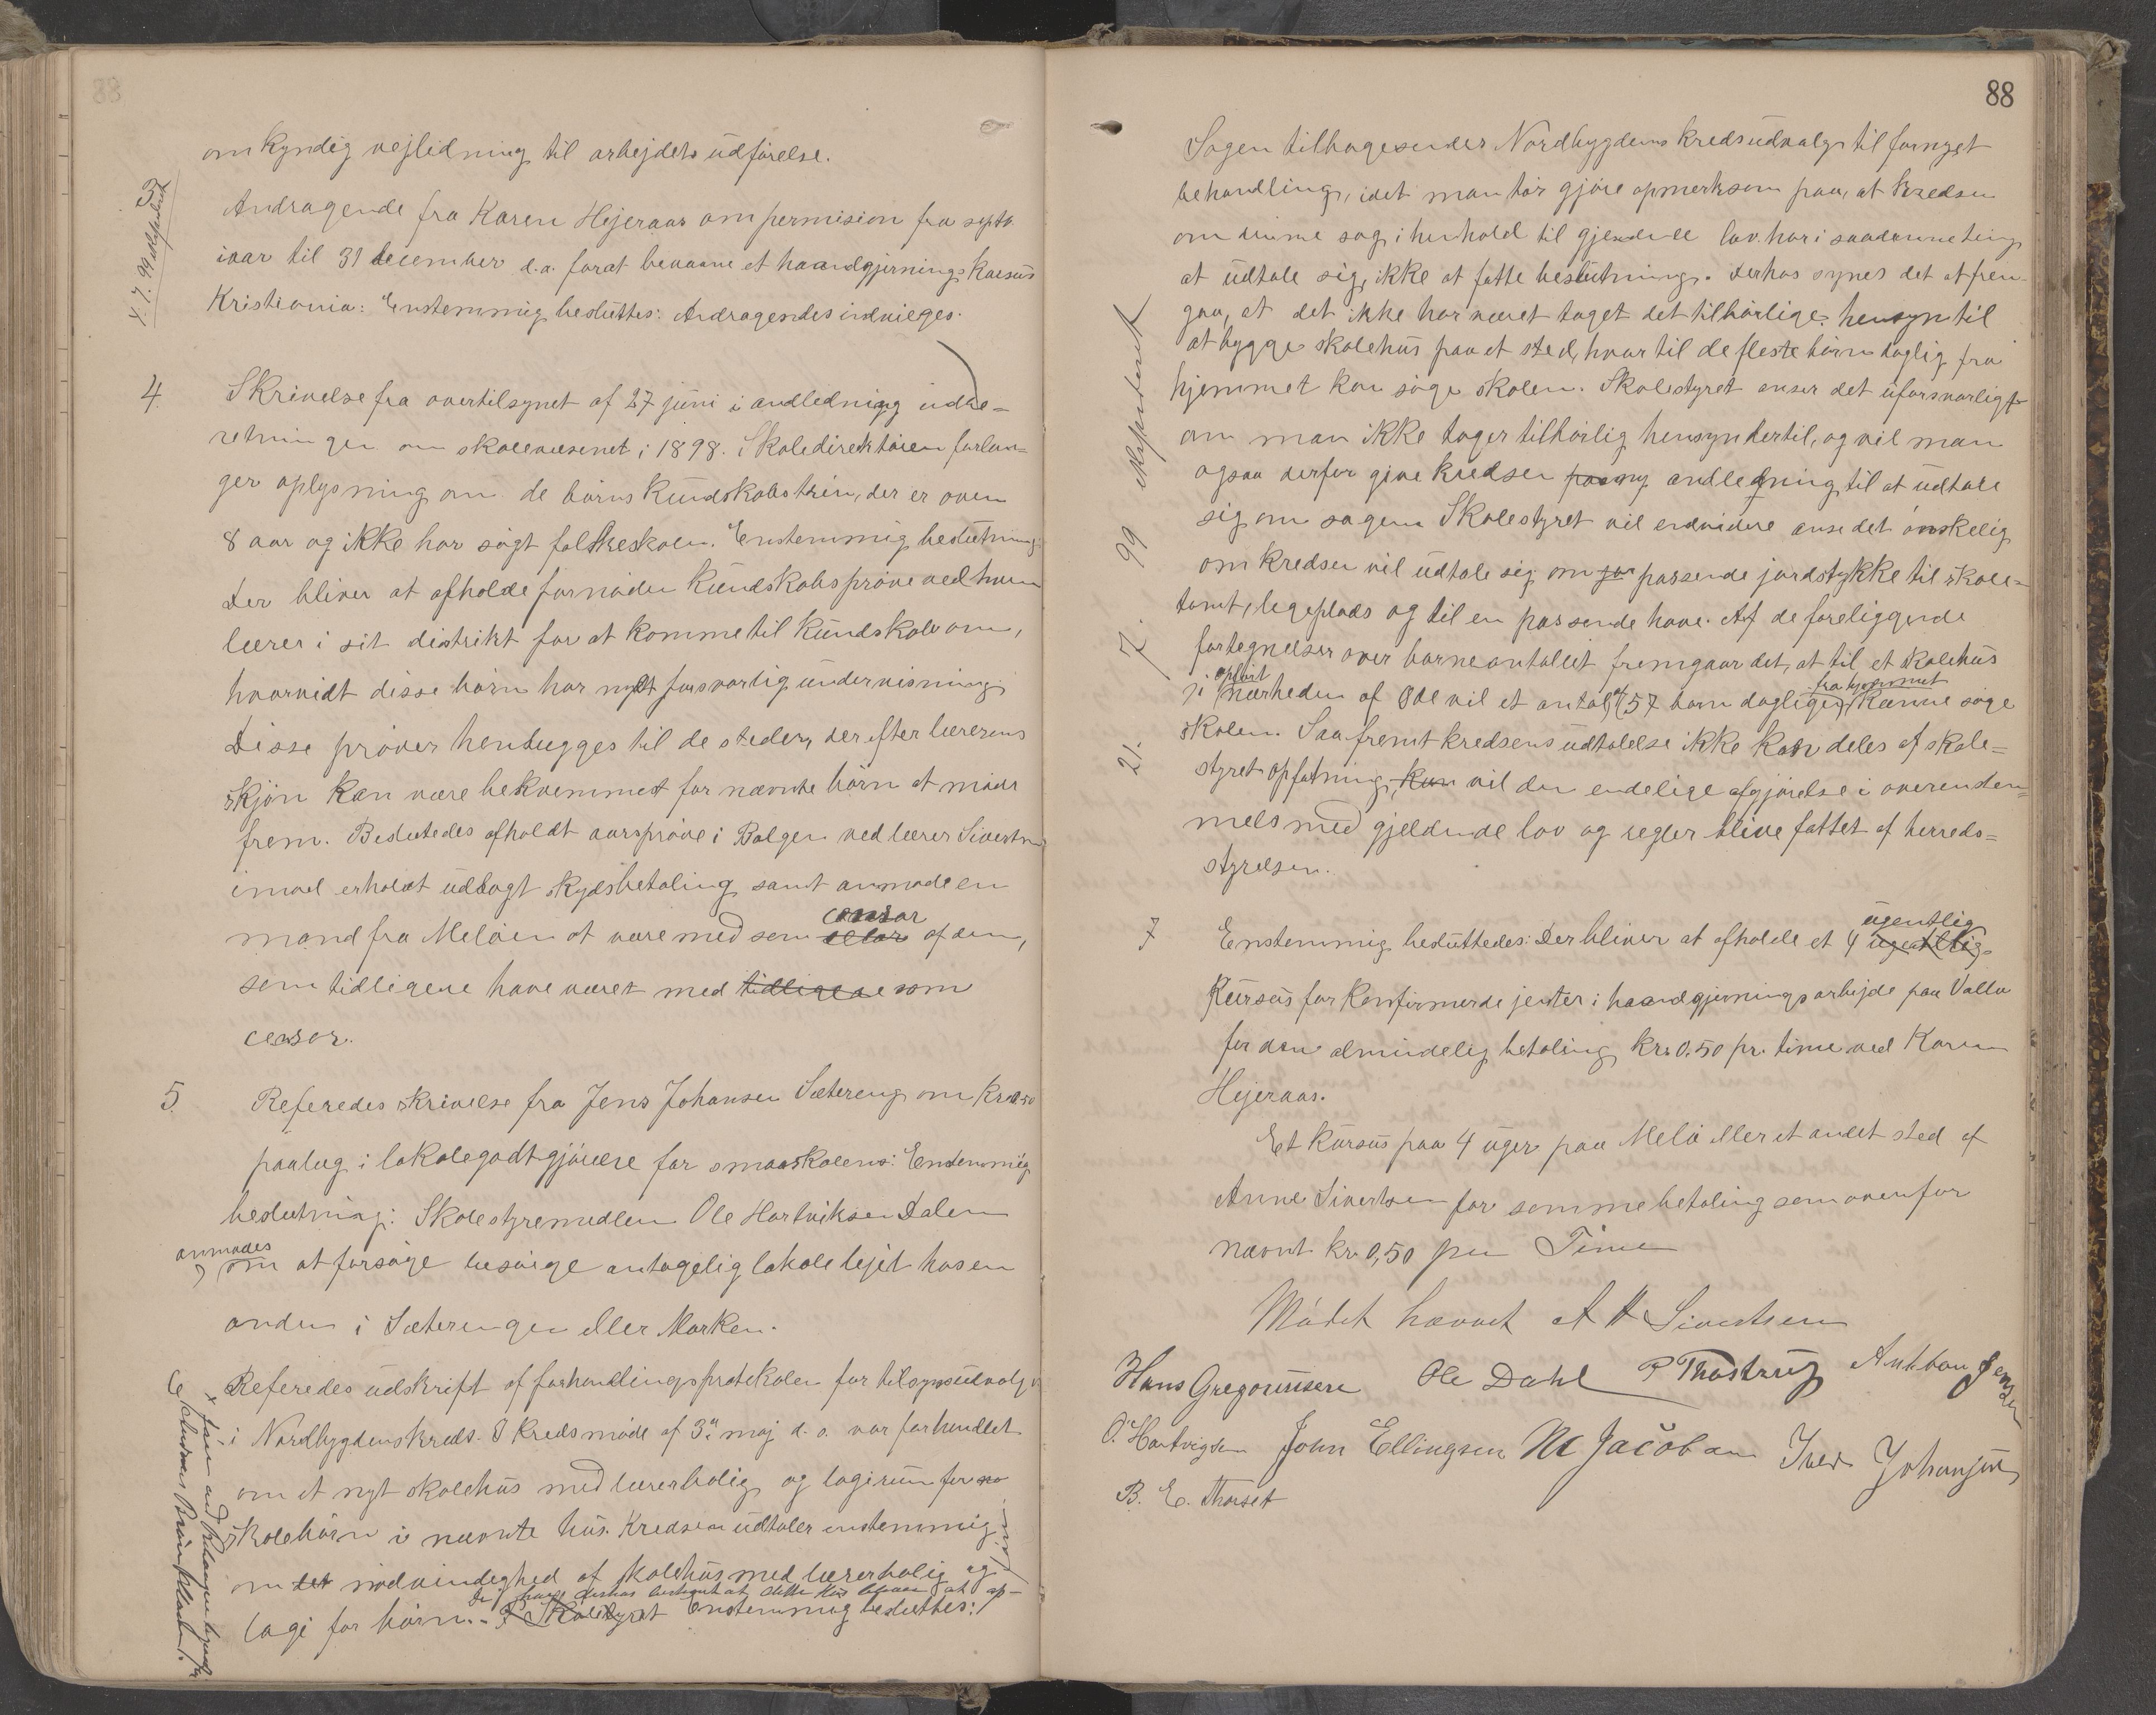 88
om kyndig vejledning til arbejdets udførelse.
3
4.7.99 udskrevet
Andragende fra Karen Hejeraas om permision fra septr.
ivaar til 31 december d.a. forat bevaane et haandgjernings Kursus
Kristiania: Enstemmig besluttes: Andragendes indvilges.
4.
Skrivelse fra overtilsynet af 27 juni i andledning indbe-
retningen om skolevæsenet i 1898. Skoledirektøren forlan-
ger oplysning om de børns kundskabstrin, der er oven
8 aar og ikke har søgt folkeskolen. Enstemmig beslutning
Der bliver at afholde fornøden Kundskabsprøve ved hver
lærer i sit distrikt for at komme til Kundskab om,
hvorvidt disse børn har nydt forsvarlig undervisning.
Disse prøver henlægges til de steder, der efter lærerens
skjøn kan være bekvemmest for nævnte børn at møde
frem. Besluttedes afholdt aarsprøve i Bolgen ved lærer Sivertsen
imod erholdt udlagt skydsbetaling samt anmode en
censor
mand fra Meløen at være med som af dem,
som tidligere have været med tidligere som
censor.
5.
Referedes skrivelse fra Jens Johansen Sætereng om Kr. 0.50
paalæg i lokalegodtgjørelse for smaaskolens: Enstemmig
beslutning: Skolestyremedlem Ole Hartviksen Dalen
anmodes
om at forsøge besørge antagelig lokale lejet hos en
anden i Sæterengen eller Marken.
6
Referedes udskrift af forhandlingsprotokolen for tilsynsudvalget
i Nordbygdenskreds. I kredsmøde af 3die maj d.a. var forhandlet
om et nyt skolehus med lærerbolig og logirum for
skolebørn i nævnte hus. Kredsen udtaler enstemmig
om det nødvendighed af skolehus med lærerbolig og
de have derhos bestemt at dette hus bliver at op-
logi for børn. - Skolestyret Enstemmig besluttes:
88
Sagen tilbagesendes Nordbygdens kredsudvalgs til fornyet
behandling, idet man tør gjøre opmerksom paa, at kredsen
om denne sag i henhold til gjældende lov har i saadanne ting
at udtale sig, ikke at fatte beslutning. Derhos synes det at frem-
gaa, at det ikke har været taget det tilbørlige hensyn til
at bygge skolehus paa et sted, hvor til de fleste børn daglig fra
hjemmet kan søge skolen. Skolestyret anser det uforsvarligt
om man ikke tager tilbørlig hensyn dertil, og vil man
ogsaa derfor give kredsen paa ny andledning til at udtale
sig om sagen. Skolestyret vil endvidere anse det ønskelig
om kredsen vil udtale sig om passende jordstykke til skole-
tomt, legeplads og til en passende have. Af de foreliggende
fortegnelser over barneantallet fremgaar det, at til et skolehus
opført
fra hjemmet
i nærheden af Øde vil et antal af 57 børn daglig kunne søge
skolen. Saafremt kredsens udtalelse ikke kan deles af skole-
styret opfatning, kan vil den endelige afgjørelse i overenstem-
mels med gjeldende lov og regler blive fattet af herreds-
styrelsen.
21. 7. 99 Expederet
7
Enstemmig besluttedes: Der bliver at afholde et 4 ugentlig
Kursus for konfirmerde jenter i haandgjerningsarbejde paa Valla
for den almindelig betaling kr. 0.50 pr. time ved Karen
Hejeraas.
Et Kursus paa 4 uger paa Melø eller et andet sted af
Anne Sivertsen for samme betaling som ovenfor
nævnt kr. 0,50 per Time
Mødet hævvet A H Sivertsen
Hans Gregoriussen Ole Dahl P Thostrup Anthon Jensen
O. Hartvigsen John Ellingsen M Jacobsen Iver Johansen
B. E. Thorset